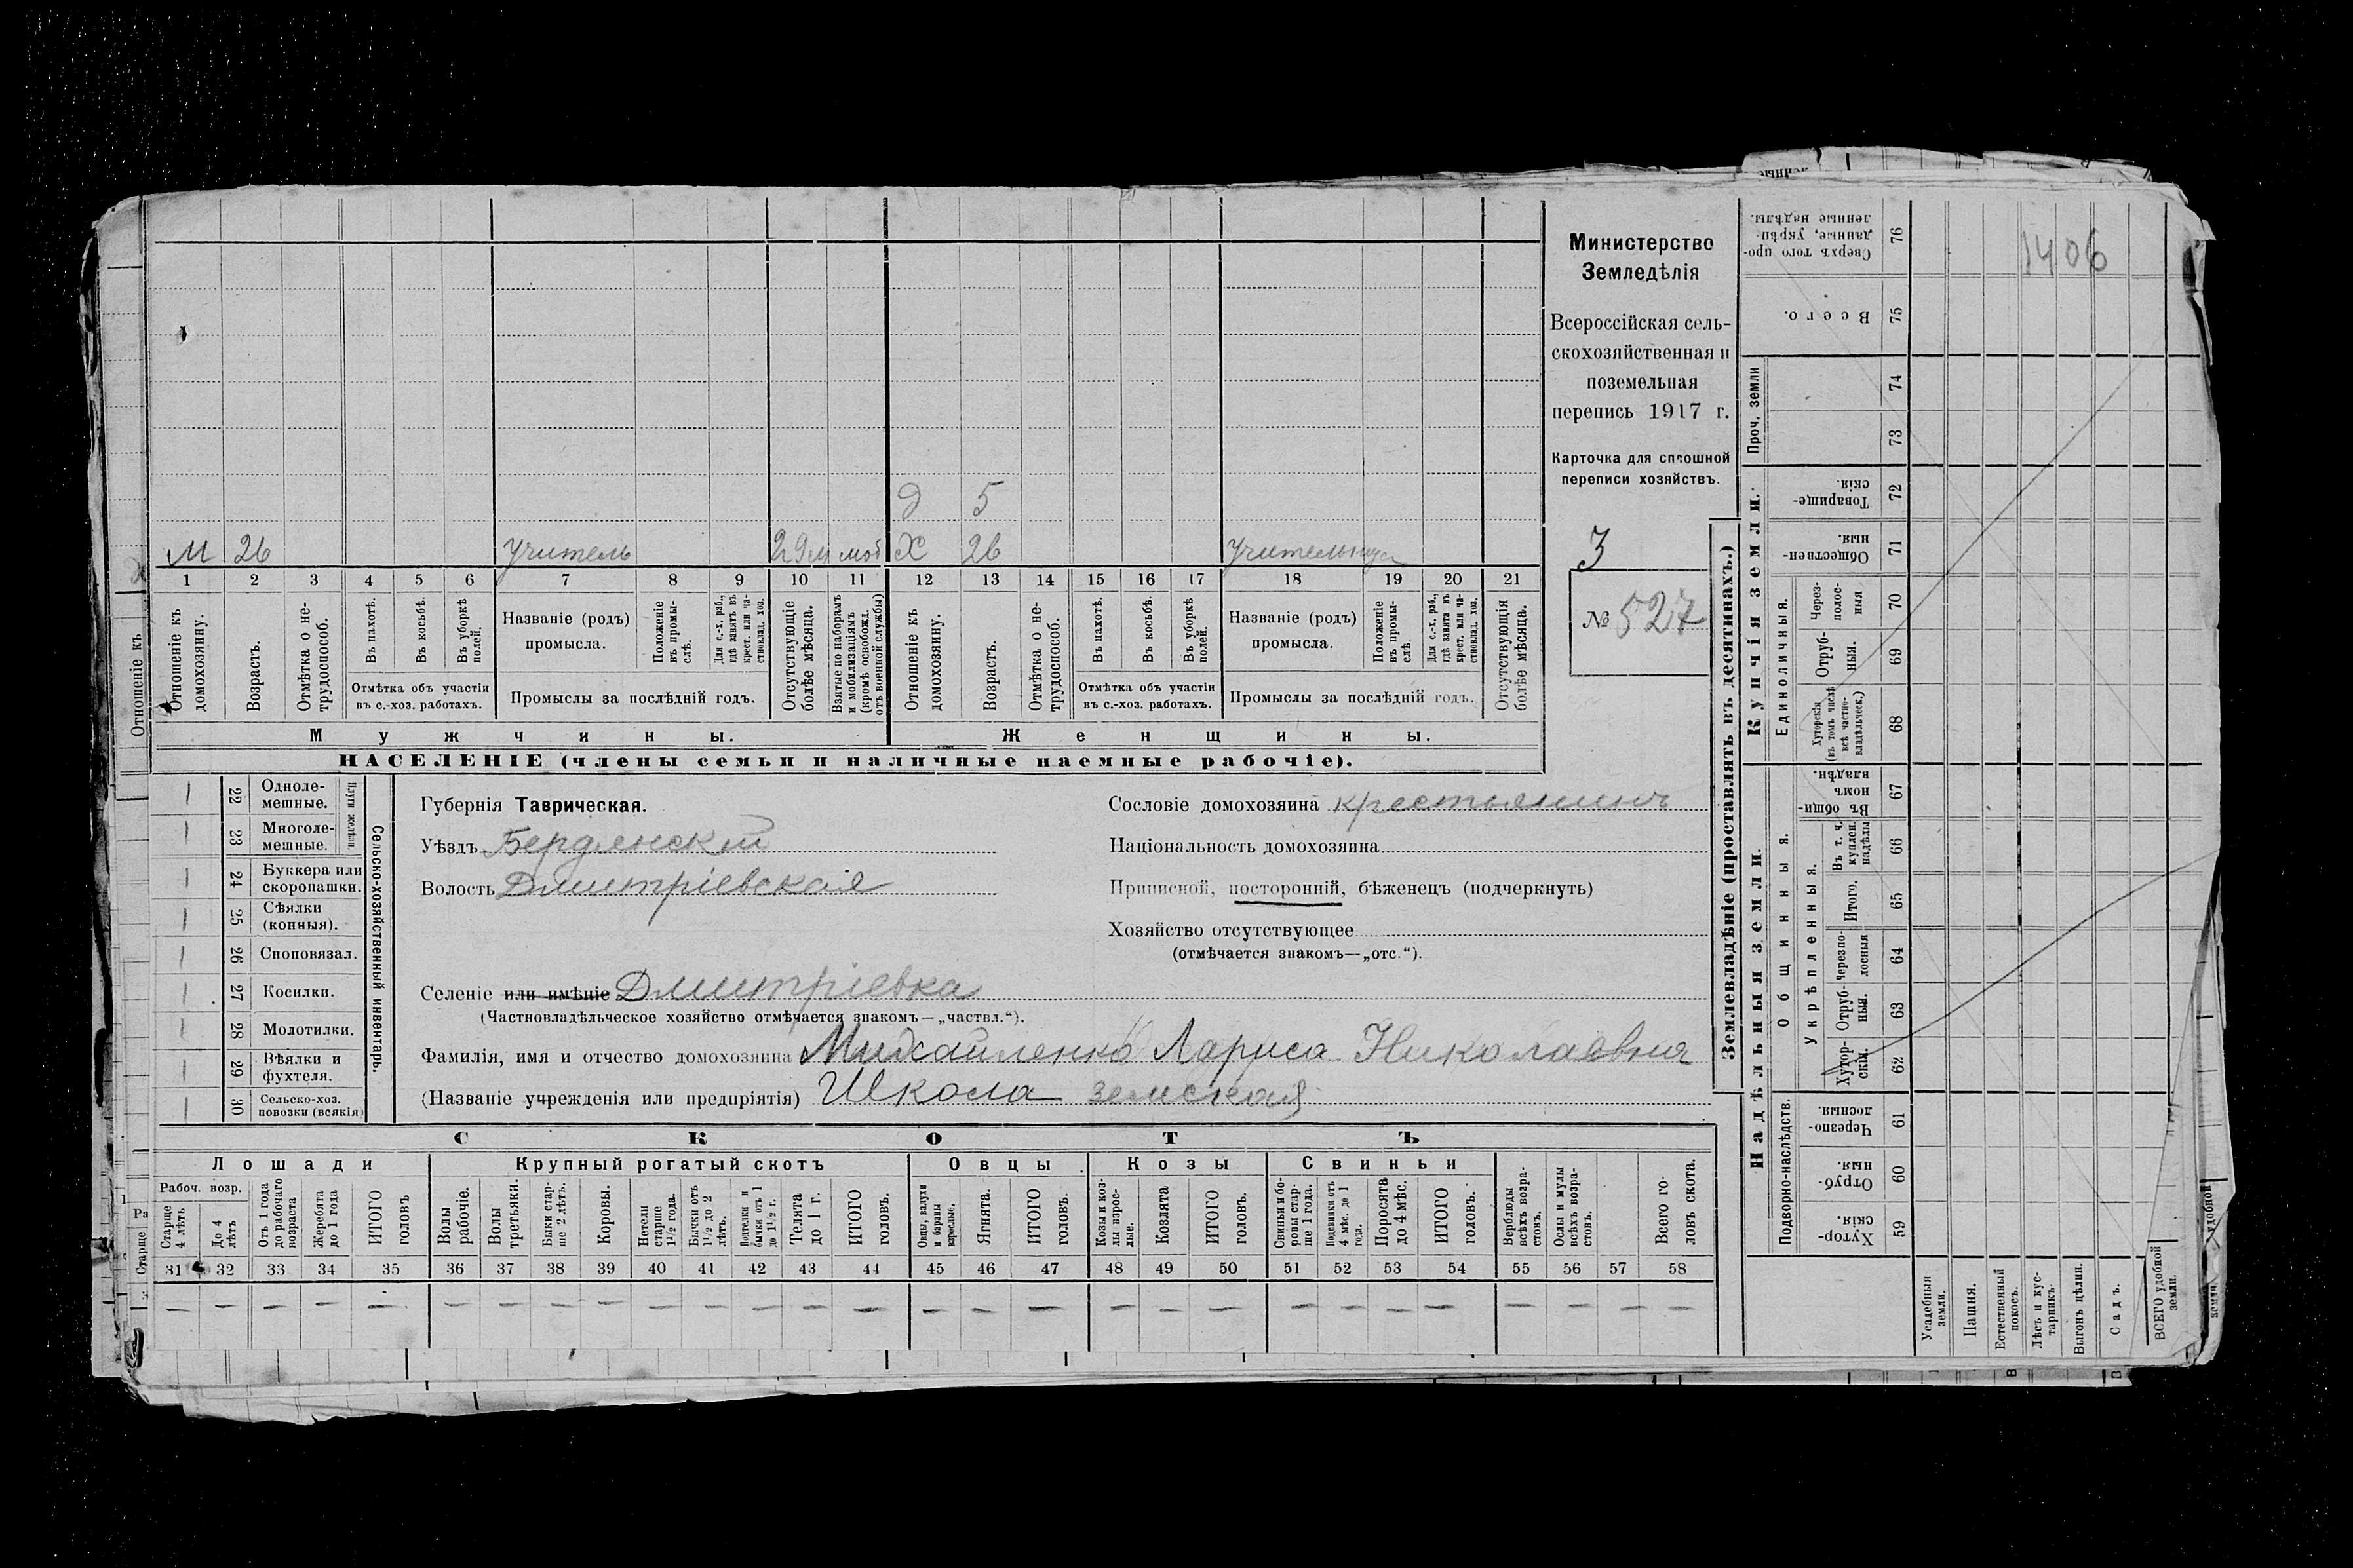 1406
Министерство
Земледѣлія
Всероссійская сель-
скохозяйственная и
поземельная
перепись 1917 г.
Карточка для сплошной
переписи хозяйствъ.
З
№ 527
д 5
М 26 Учитель моб Х 26 Учительница
1 2 3 4 5 6 7 8 9 10 11 12 13 14 15 16 17 18 19 20 21
Отношеніе къ домохозяину.
Возрастъ.
Отмѣтка о не-трудоспособ.
Въ пахотѣ.
Въ косьбѣ.
Въ уборкѣ полей.
Отмѣтка объ участіи
въ с.-хоз. работахъ.
Названіе (родъ)
промысла.
Положеніе въ промы-слѣ.
Для с.-х. раб., гдѣ занятъ въ крест. или ча-стновлад. хоз.
Промыслы за послѣдній годъ.
Отсутствующіе болѣе мѣсяца.
Взятые по наборамъ и мобилизаціямъ (кромѣ освобожд. отъ военной службы)
Отношеніе къ домохозяину.
Возрастъ.
Отмѣтка о не-трудоспособ.
Въ пахотѣ.
Въ косьбѣ.
Въ уборкѣ полей.
Отмѣтка объ участіи
въ с.-хоз. работахъ.
Названіе (родъ)
промысла.
Положеніе въ промы-слѣ.
Для с.-х. раб., гдѣ занята въ крест. или ча-стновлад. хоз.
Промыслы за послѣдній годъ.
Отсутствующія болѣе мѣсяца.
Отношеніе къ
Мужчины. Женщины.
НАСЕЛЕНІЕ (члены семьи и наличные наемные рабочіе).
22 Одноле-мешные.
23 Многоле-мешные.
Плуги желѣзн.
24 Буккера или скоропашки.
25 Сѣялки (конныя).
26 Сноповязал.
27 Косилки.
28 Молотилки.
29 Вѣялки и фухтеля.
30 Сельско-хоз. повозки (всякія)
Сельско-хозяйственный инвентарь.
Губернія Таврическая.
Уѣздъ Бердянскій
Волость Дмитріевская
Сословіе домохозяина крестьянинъ
Національность домохозяина
Приписной, посторонній, бѣженецъ (подчеркнуть)
Хозяйство отсутствующее
(отмѣчается знакомъ—„отс.“).
Селеніе или имѣніе Дмитріевка
(Частновладѣльческое хозяйство отмѣчается знакомъ—„частвл.“).
Фамилія, имя и отчество домохозяина Михайленко Лариса Николаевна
(Названіе учрежденія или предпріятія) Школа земская
СКОТЪ
Лошади Крупный рогатый скотъ Овцы Козы Свиньи
Рабоч. возр.
Старше 4 лѣтъ
До 4 лѣтъ
Отъ 1 года до рабочаго возраста
Жеребята до 1 года
ИТОГО головъ
Волы рабочіе.
Волы третьяки.
Быки стар-ше 2 лѣтъ.
Коровы.
Нетели старше 1½ года.
Бычки отъ 1½ до 2 лѣтъ.
Телята до 1 г.
ИТОГО головъ.
Овцы, валухи и бараны взрослые.
Ягнята.
ИТОГО головъ.
Козы и коз-лы взрос-лые.
Козлята
ИТОГО головъ.
Свиньи и бо-ровы стар-ше 1 года.
Подсвинки отъ 4 мѣс. до 1 года.
Поросята до 4 мѣс.
ИТОГО головъ.
Верблюды всѣхъ возра-стовъ.
Ослы и мулы всѣхъ возра-стовъ.
Всего го-ловъ скота.
31 32 33 34 35 36 37 38 39 40 41 42 43 44 45 46 47 48 49 50 51 52 53 54 55 56 57 58
Землевладѣніе (проставлять въ десятинахъ.)
Надѣльныя земли.
Купчія земли.
Проч. земли
Сверхъ того про-данные, укрѣп-ленные надѣлы. 76
Всего. 75
74
73
Товарище-скія. 72
Обществен-ныя. 71
Единоличныя.
Через-полос-ныя 70
Отруб-ныя. 69
Хуторскія (въ томъ числѣ всѣ частно-владѣльческ.) 68
Общинныя.
Въ общи-номъ владѣн. 67
Укрѣпленныя.
Въ т. ч. куплен. надѣлы 66
Итого. 65
Черезпо-лосныя 64
Отруб-ныя. 63
Хутор-скія. 62
Подворно-наслѣдств.
Черезпо-лосныя. 61
Отруб-ныя. 60
Хутор-скія. 59
Усадебныя земли.
Пашня.
Естественный покосъ.
Лѣсъ и кус-тарникъ
Выгонъ цѣлин.
Садъ.
ВСЕГО удобной земли.